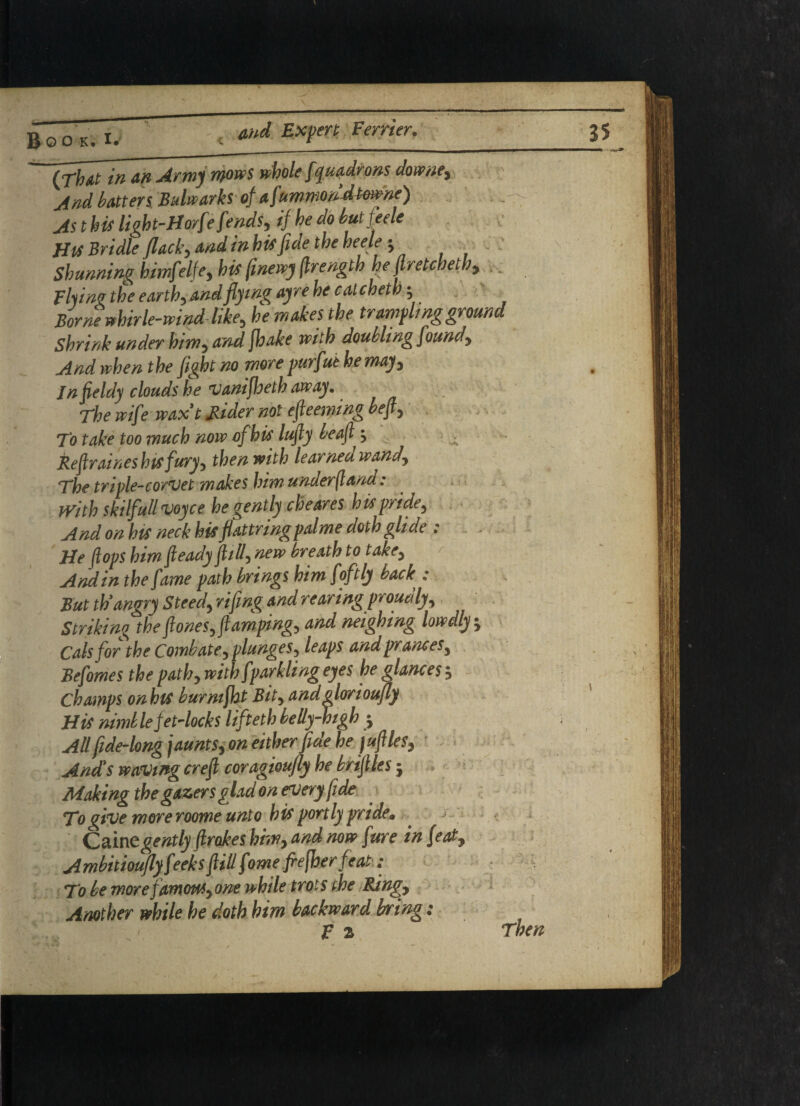 Book. I. and Expert Ferrier. 35
(That in an Army mows whole squadrons downe,
And batters Bulwarks of a summon'd towne)
As this light-Horse sends, if he do but feele
His Bridle slack, and in his side the heele;
Shunning himselfe, his sinewy strength he stretcheth,
Flying the earth, and flying ayre he catcheth;
Borne whirle-wind-like, he makes the trampling ground
Shrink under him, and shake with doubling sound,
And when the sight no more pursue he may,
In fieldy clouds he vanisheth away.
The wise wax't Rider not esteeming best,
To take too much now of his lusty beast;
Restraines his fury, then with learned wand,
The triple-corvet makes him understand:
With skilfull voyce he gently cheares his pride,
And on his neck his flattring palme doth glide:
He stops him steady still, new breath to take,
And in the same path brings him softly back:
But th'angry Steed, rising and rearing proudly,
Striking the stones, stamping, and neighing lowdly;
Cals for the Combate, plunges, leaps and prances,
Besomes the path, with sparkling eyes he glances;
Champs on his burnisht Bit, and gloriously
His nimble jet-locks lifteth belly-high;
All side-long jaunts, on either side he justles,
And's waving crest coragiously he bristles;
Making the gazers glad on every side
To give more roome unto his portly pride.
Caine gently strokes him, and now sure in seat,
Ambitiously seeks still some fresher feat:
To be more famous, one while trots the Ring,
Another while he doth him backward bring:
F 2 Then